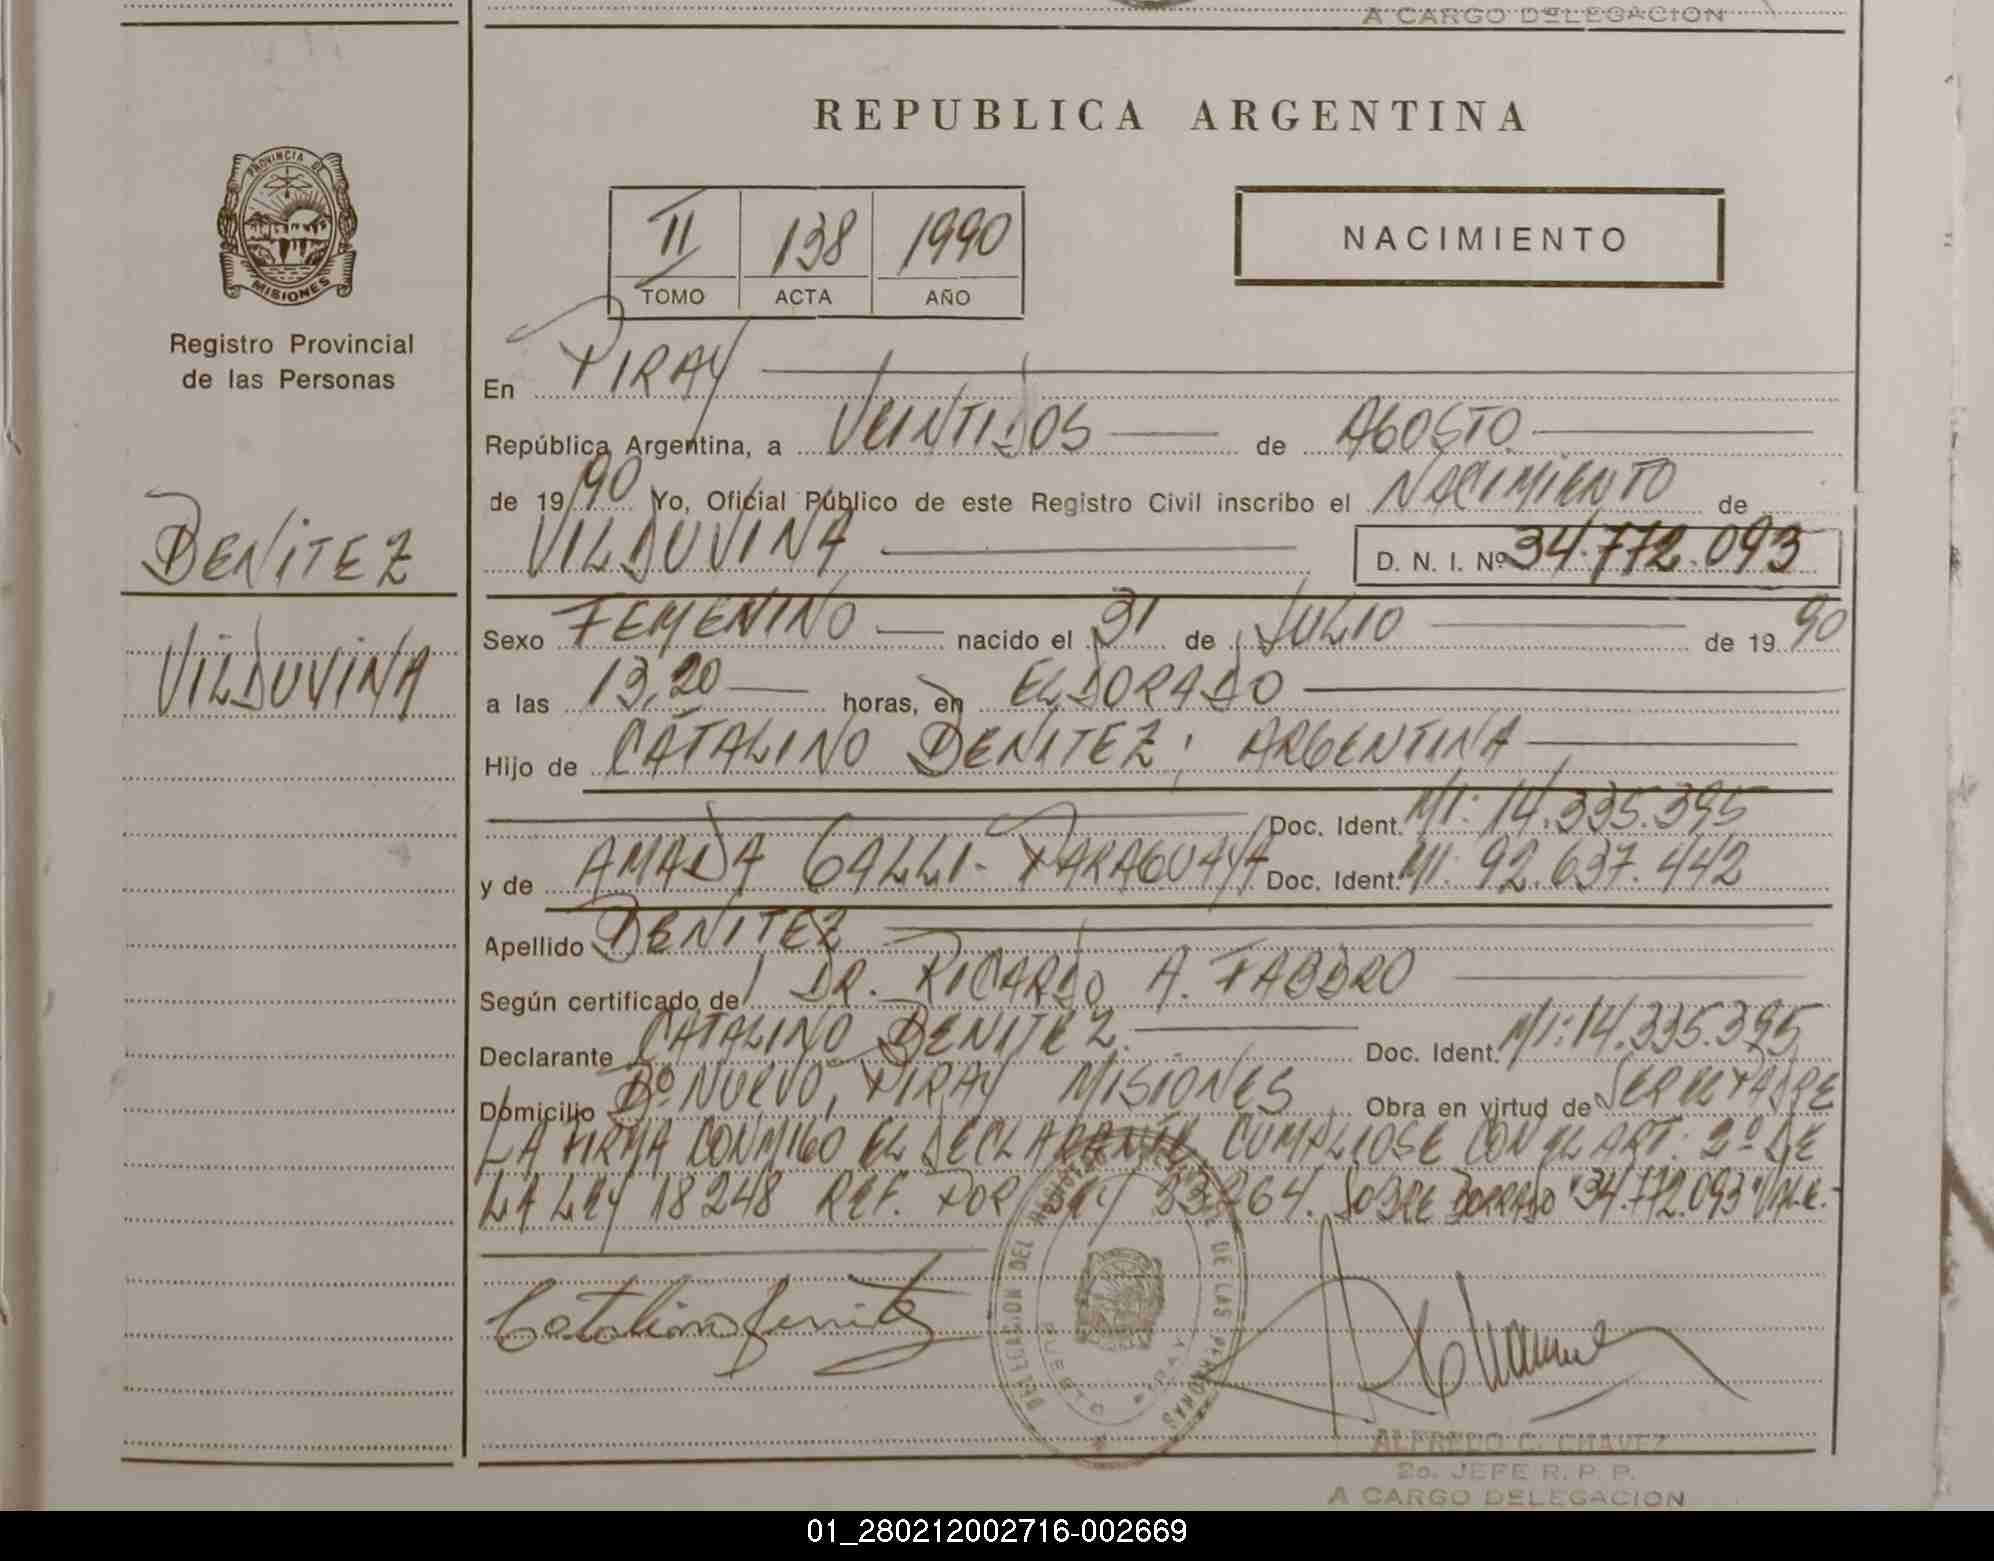 A CARGO DELEGACION
REPUBLICA ARGENTINA
PROVINCIA DE
MISIONES
Registro Provincial
de las Personas
BENITEZ
VILDUVINA
II 138 1990
TOMO ACTA AÑO
NACIMIENTO
En PIRAY
República Argentina, a VEINTIDOS de AGOSTO
de 1990 Yo, Oficial Público de este Registro Civil inscribo el NACIMIENTO de
VILDUVINA D. N. I. Nº 34.772.093
Sexo FEMENINO nacido el 31 de JULIO de 1990
a las 13,20 horas, en ELDORADO
Hijo de CATALINO BENITEZ; ARGENTINA
Doc. Ident. MI: 14.335.395
y de AMADA GALLI- PARAGUAYA Doc. Ident. MI: 92.637.442
Apellido BENITEZ
Según certificado de DR. RICARDO A. FABBRO
Declarante CATALINO BENITEZ. Doc. Ident. MI: 14.335.395
Domicilio Bº NUEVO, PIRAY MISIONES Obra en virtud de SER EL PADRE
LA FIRMA CONMIGO EL DECLARANTE CUMPLIOSE CON EL ART: 2º DE
LA LEY 18248 REF. POR LEY 23264. SOBRE BORRADO "34.772.093" VALE.-
Catalino Benitez
DELEGACION DEL REGISTRO DE LAS PERSONAS
PUERTO PIRAY
ALFREDO C. CHAVEZ
2o. JEFE R. P. P.
A CARGO DELEGACION
01_280212002716-002669